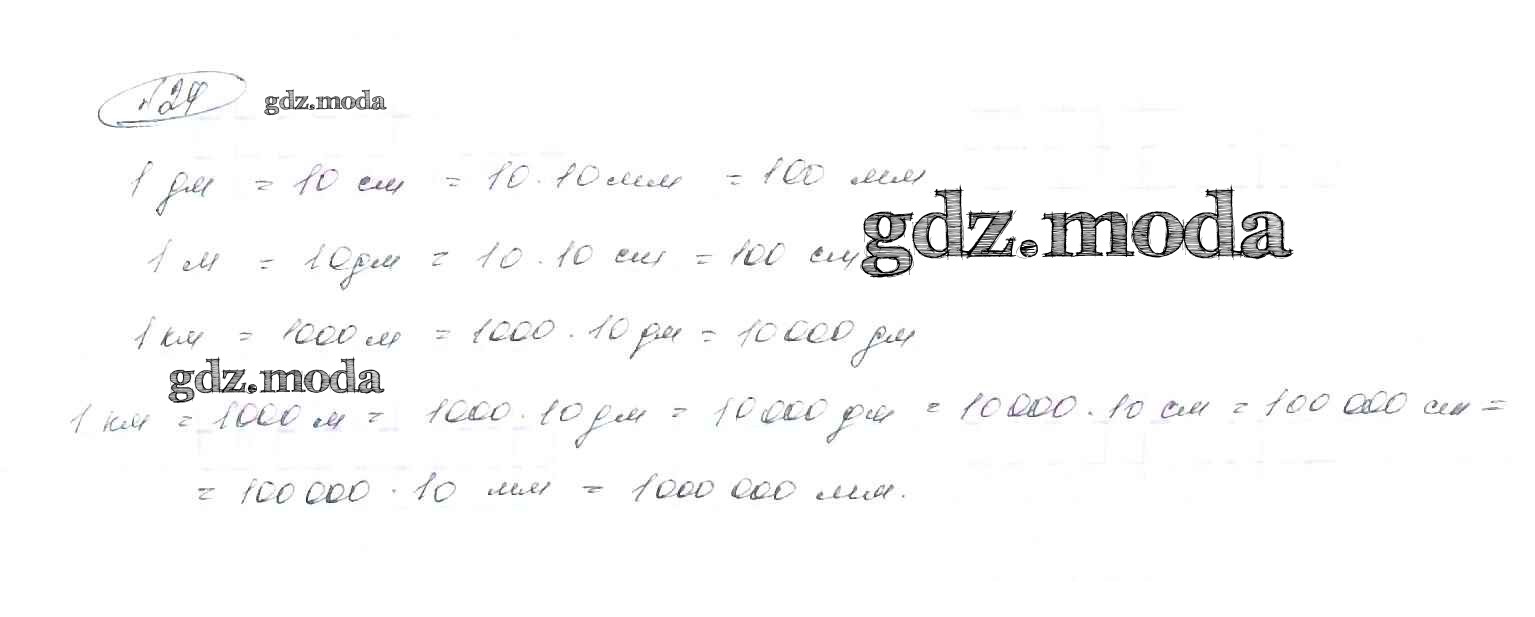 №24 gdz.moda
1 дм = 10 см = 10 · 10 мм = 100 мм
gdz.moda
1 м = 10 дм = 10 · 10 см = 100 см
1 км = 1000 м = 1000 · 10 дм = 10 000 дм
gdz.moda
1 км = 1000 м = 1000 · 10 дм = 10 000 дм = 10 000 · 10 см = 100 000 см =
= 100 000 · 10 мм = 1000 000 мм.